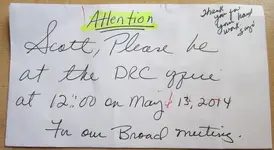 Attention
Thank you for
your hard
work, guys
Scott, Please be
at the DRC office
at 12:00 on May 13, 2014
For our Broad meeting.